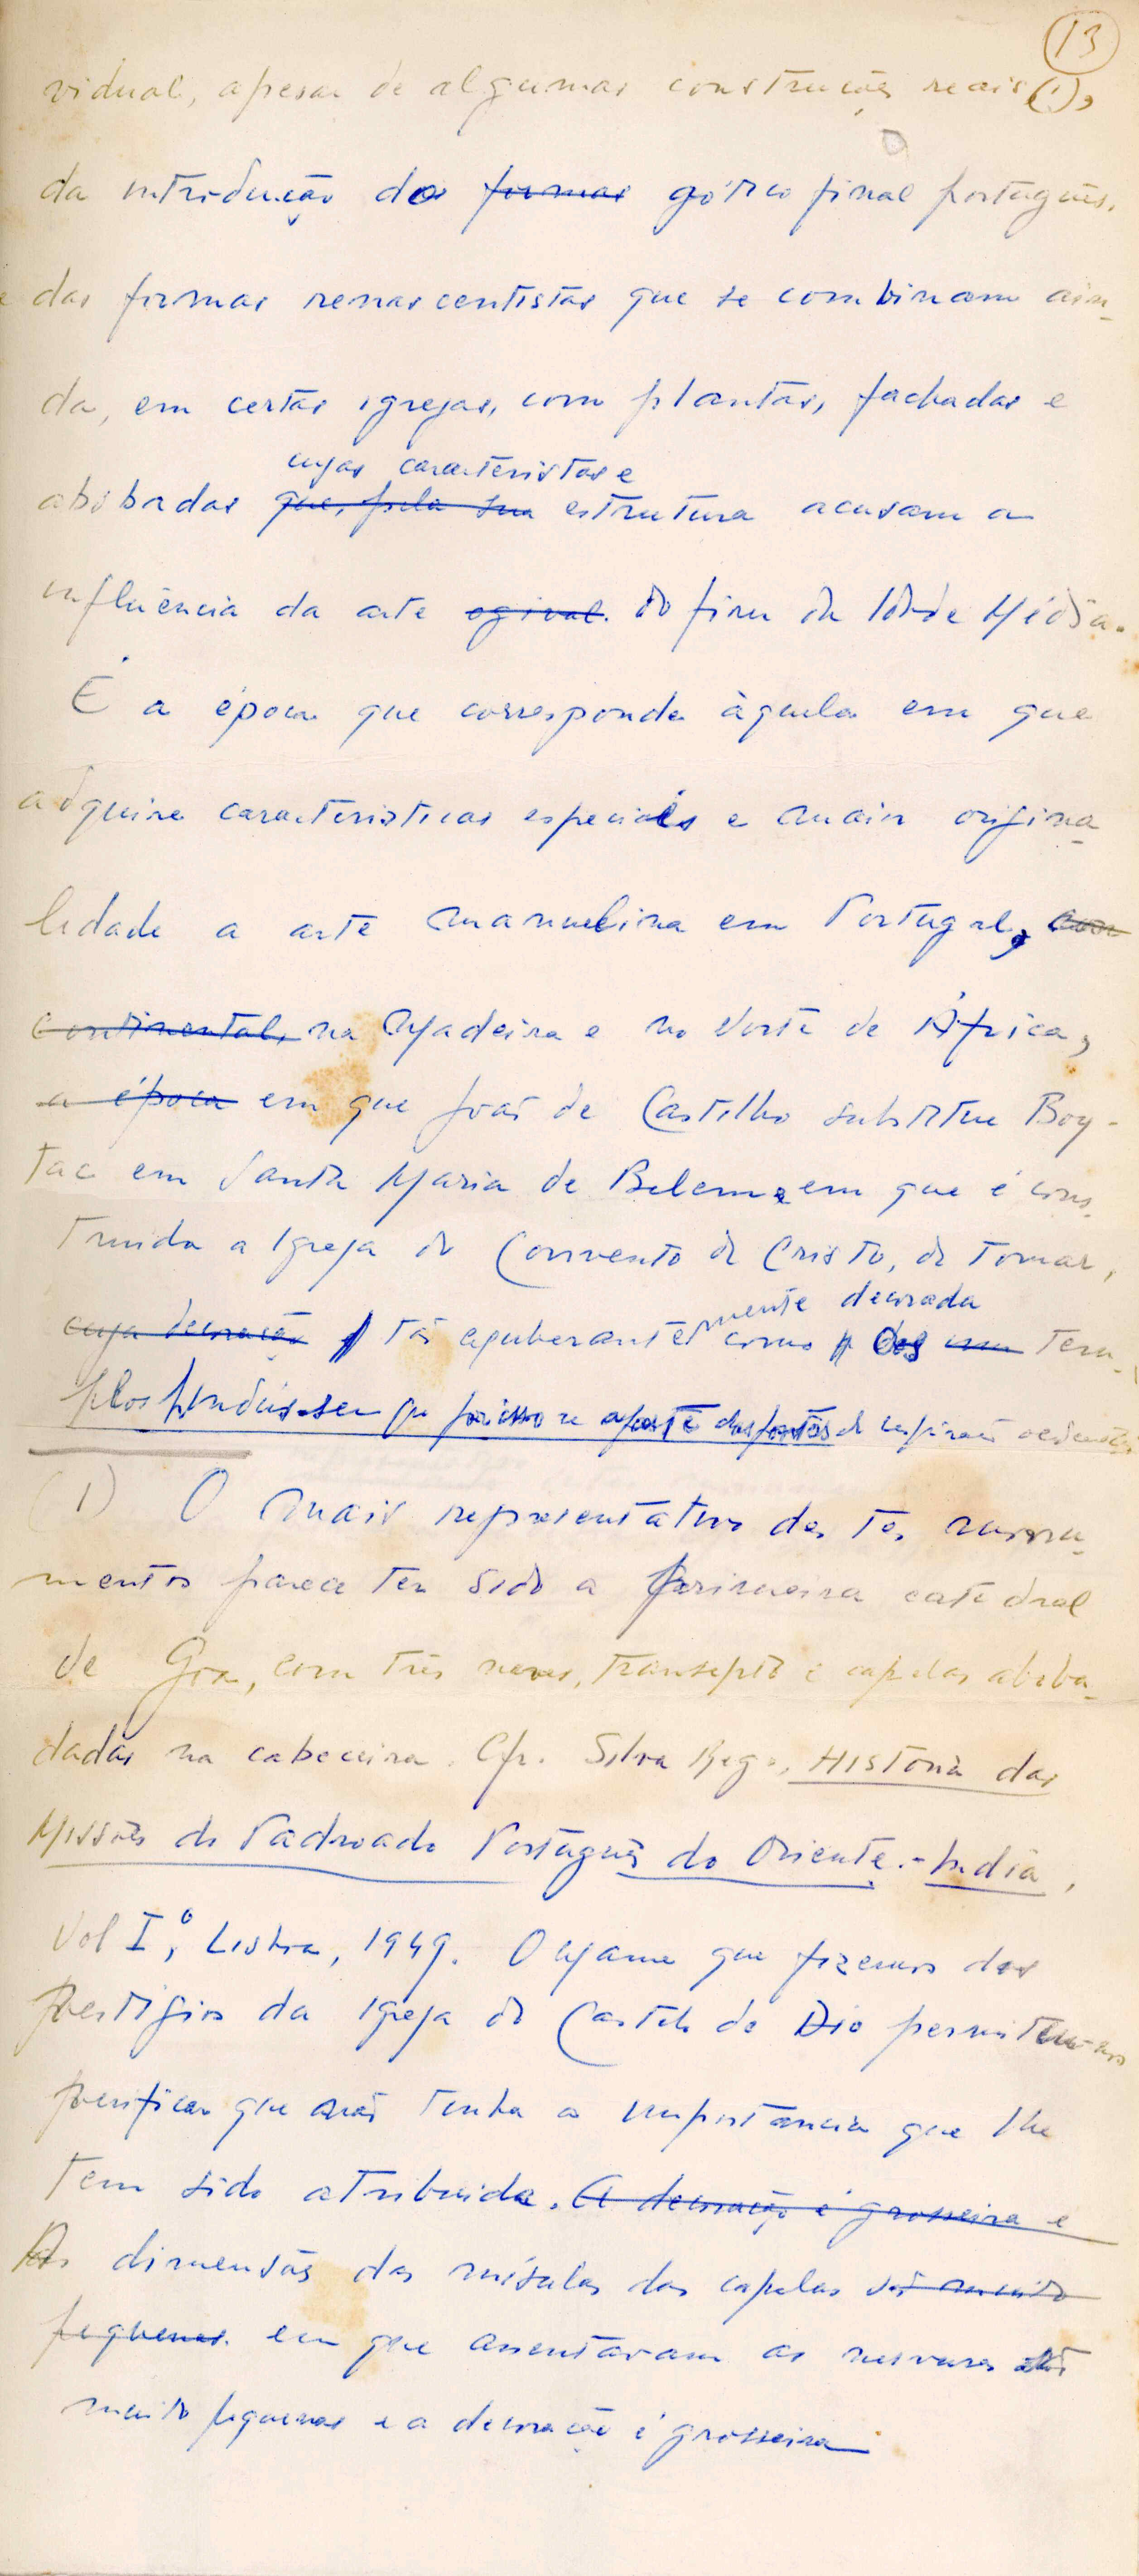 13
vidual, apesar de algumas construções reais (1),
da introdução do ~~formas~~ gótico final português,
e das formas renascentistas que se combinam ain-
da, em certas igrejas, com plantas, fachadas e
cujas caracteristas e
abobadas ~~que, pela sua~~ estrutura acusam a
influência da arte ~~ogival~~. do fim da Idade Média.
É a época que corresponde àquela em que
adquire caracteristicas especiais e maior origina-
lidade a arte manuelina em Portugal,
~~continental,~~ na Madeira e no Norte de África,
~~a época~~ em que João de Castilho substitue Boy-
tac em Santa Maria de Belem e em que é cons-
truida a Igreja do Convento de Cristo, de Tomar,
mente decorada
~~cuja decoração~~ tão exuberante como os ~~um~~ tem-
plos hindús. sem que por isso se afaste das fontes de inspiração
(1) O mais representativo destes monu-
mentos parece ter sido a primeira catedral
de Goa, com três naves, transepto e capelas aboba-
dadas na cabeceira. Cfr. Silva Rego, História das
Missões do Padroado Português do Oriente.- India,
Vol I,º Lisboa, 1949. O exame que fizemos dos
vestígios da Igreja do Castelo de Dio permitem-nos
verificar que não tenha a importância que lhe
tem sido atribuida. ~~A decoração é grosseira e~~
As dimensões das mísulas das capelas ~~são muito~~
~~pequenas.~~ em que assentavam as nervuras são
muito pequenas e a decoração é grosseira